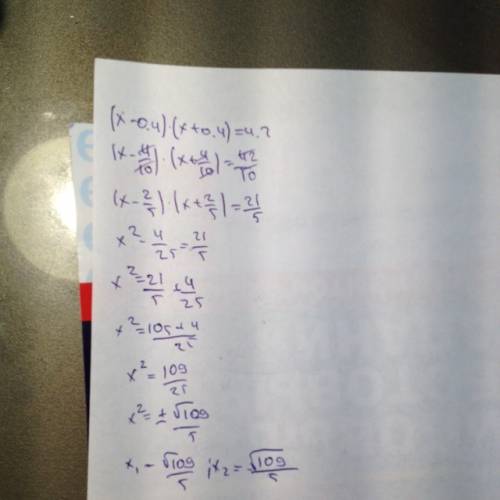 (x-0,4)·(x+0,4)=4.2
(x-4/10)·(x+4/10)=42/10
(x-2/5)·(x+2/5)=21/5
x²-4/25=21/5
x²=21/5+4/25
x²=105+4/25
x²=109/25
x²=±√109/5
x₁-√109/5 ; x₂=√109/5